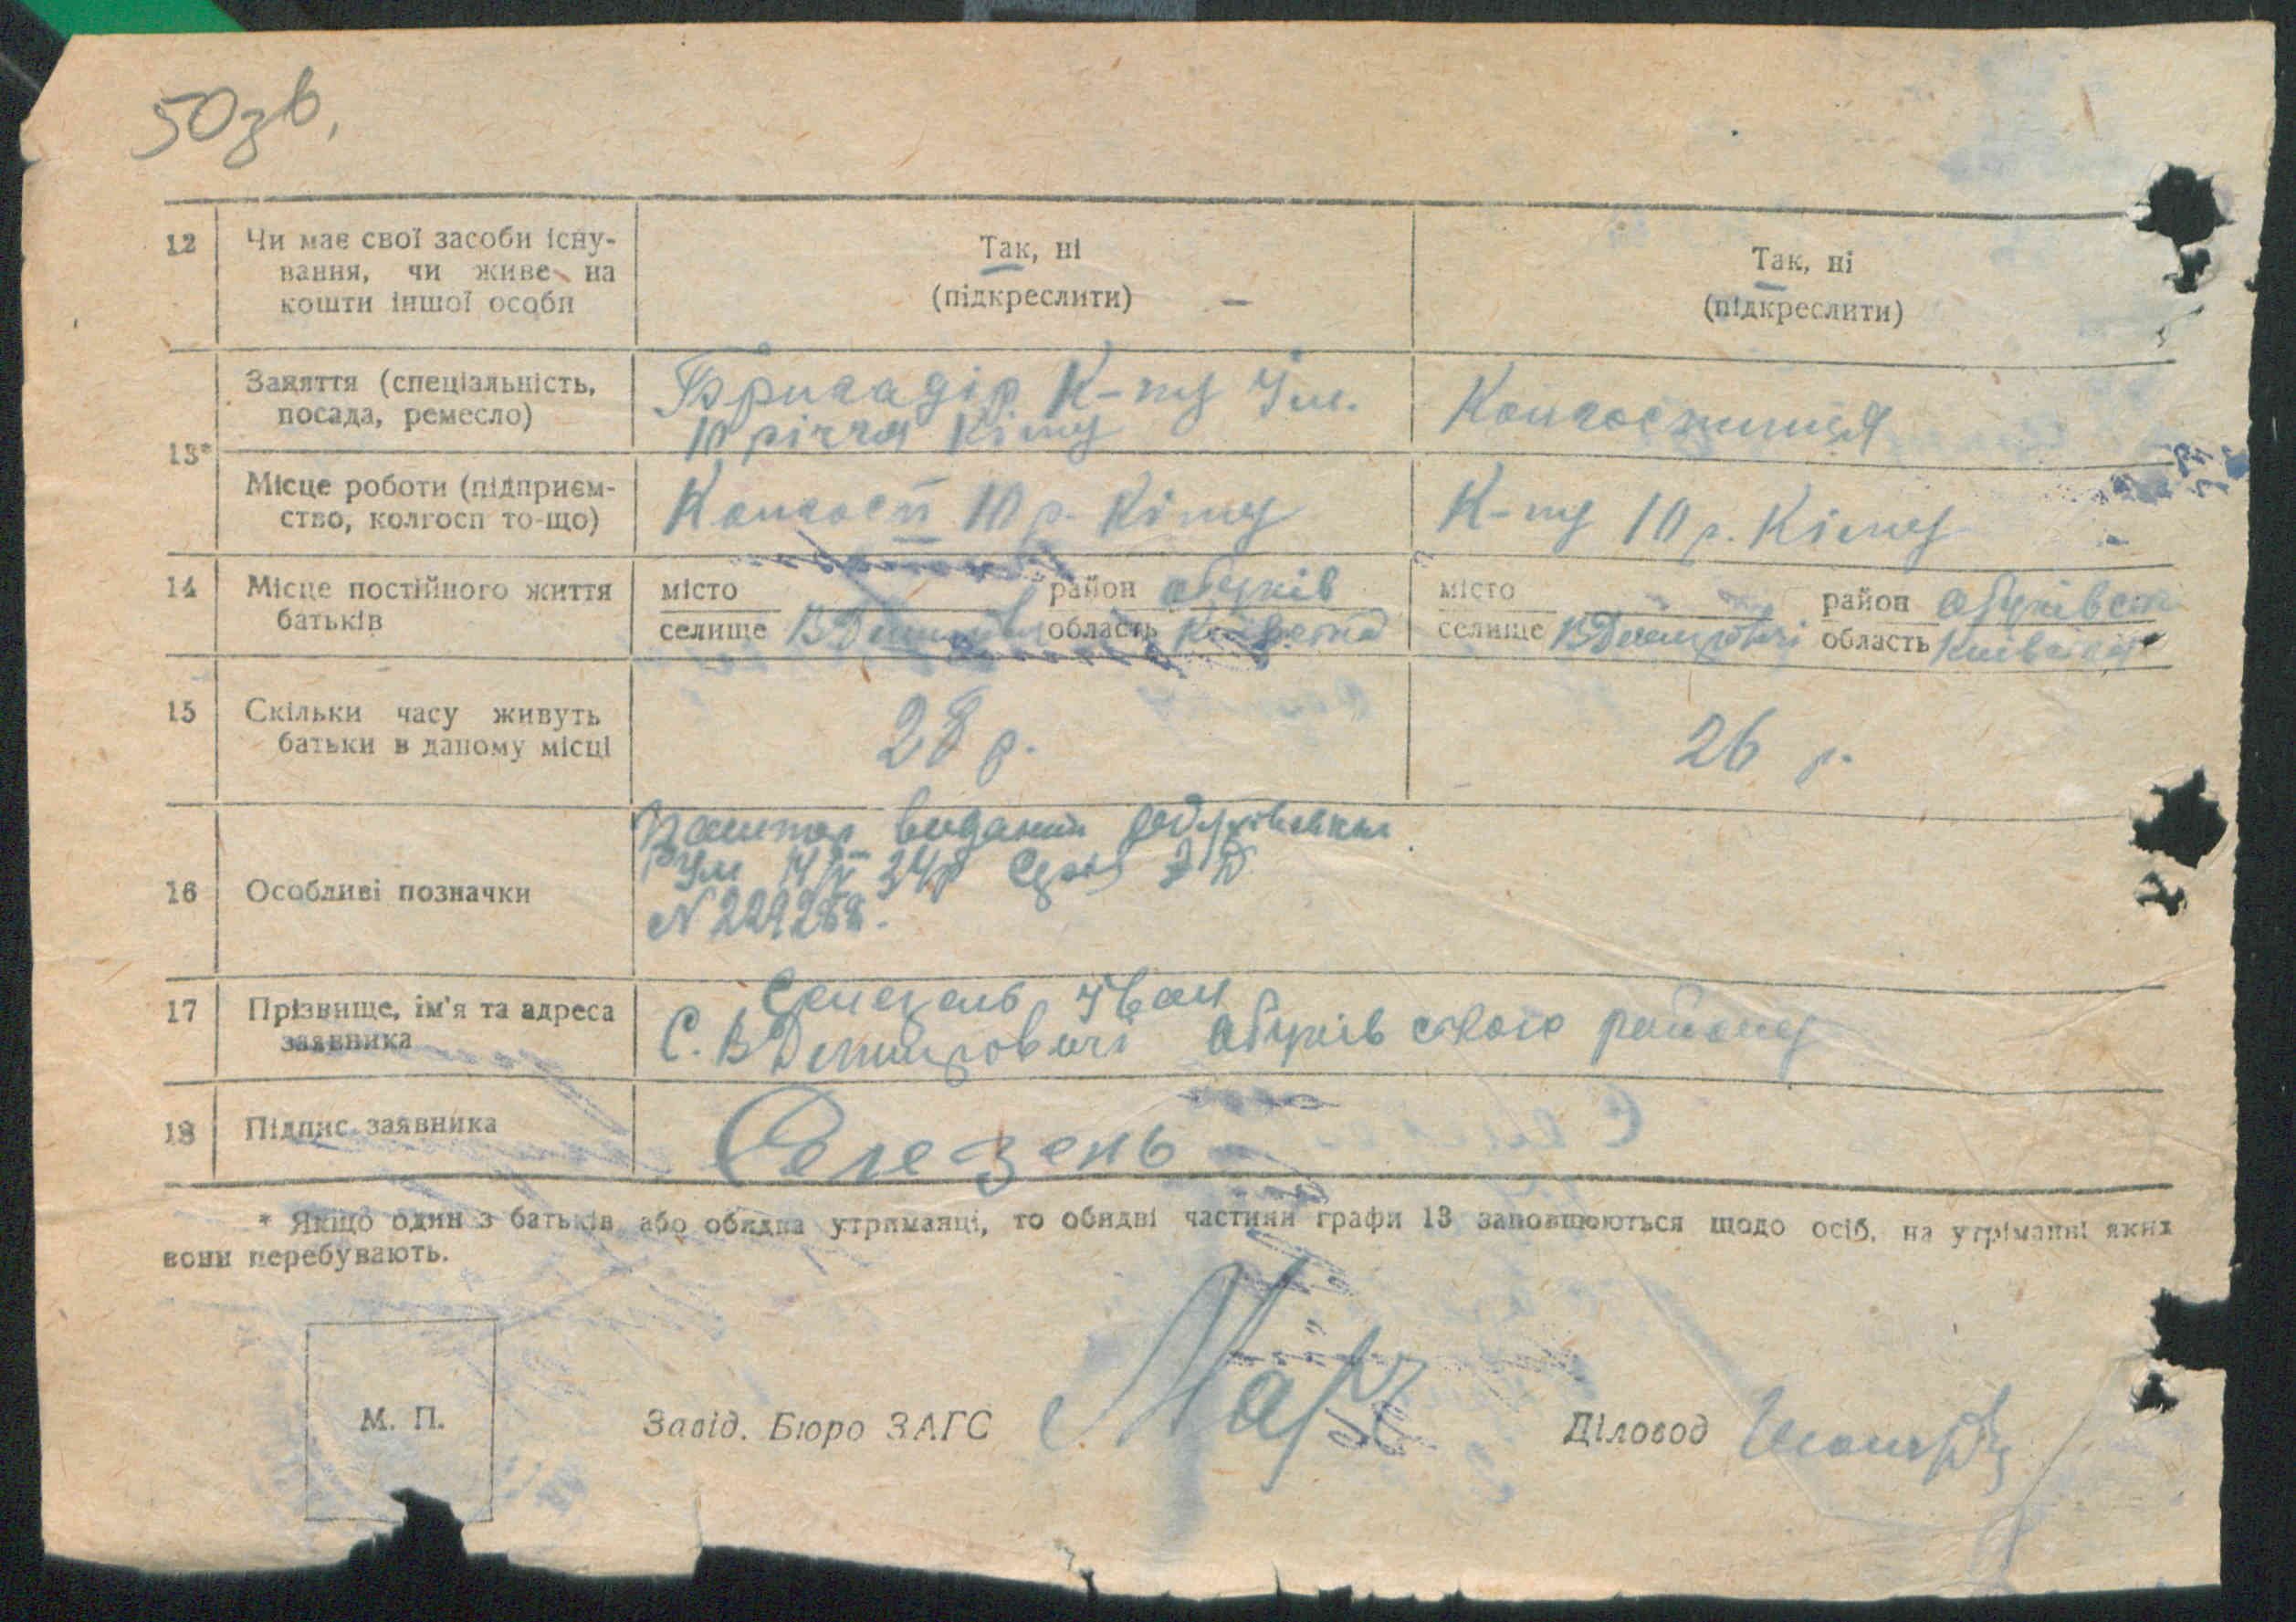 50 зв.
12 Чи має свої засоби існу-
вання, чи живе на
кошти іншої особи
Так, ні
(підкреслити) —
Так, ні
(підкреслити)
13*
Заняття (спеціальність,
посада, ремесло)
Бригадір К-пу Ім.
10 річчя Кіму
Колгоспниця
Місце роботи (підприєм-
ство, колгосп то-що)
Колгосп 10 р. Кіму
К-пу 10 р. Кіму
14 Місце постійного життя
батьків
місто район Обухів
селище ВДмитровичі область Київська
місто район Обухівськ
селище ВДмитровичі область Київська
15 Скільки часу живуть
батьки в даному місці
28 р.
26 р.
16 Особливі позначки
Пашпорт виданий
34р
N 229288.
17 Прізвище, ім'я та адреса
заявника
Селезень Іван
С. ВДмитровичі Обухівського району
18 Підпис заявника
Селезень
* Якщо один з батьків або обидва утриманці, то обидві частини графи 13 заповнюються щодо осіб, на утріманні яких
вони перебувають.
М. П.
Завід. Бюро ЗАГС
Діловод